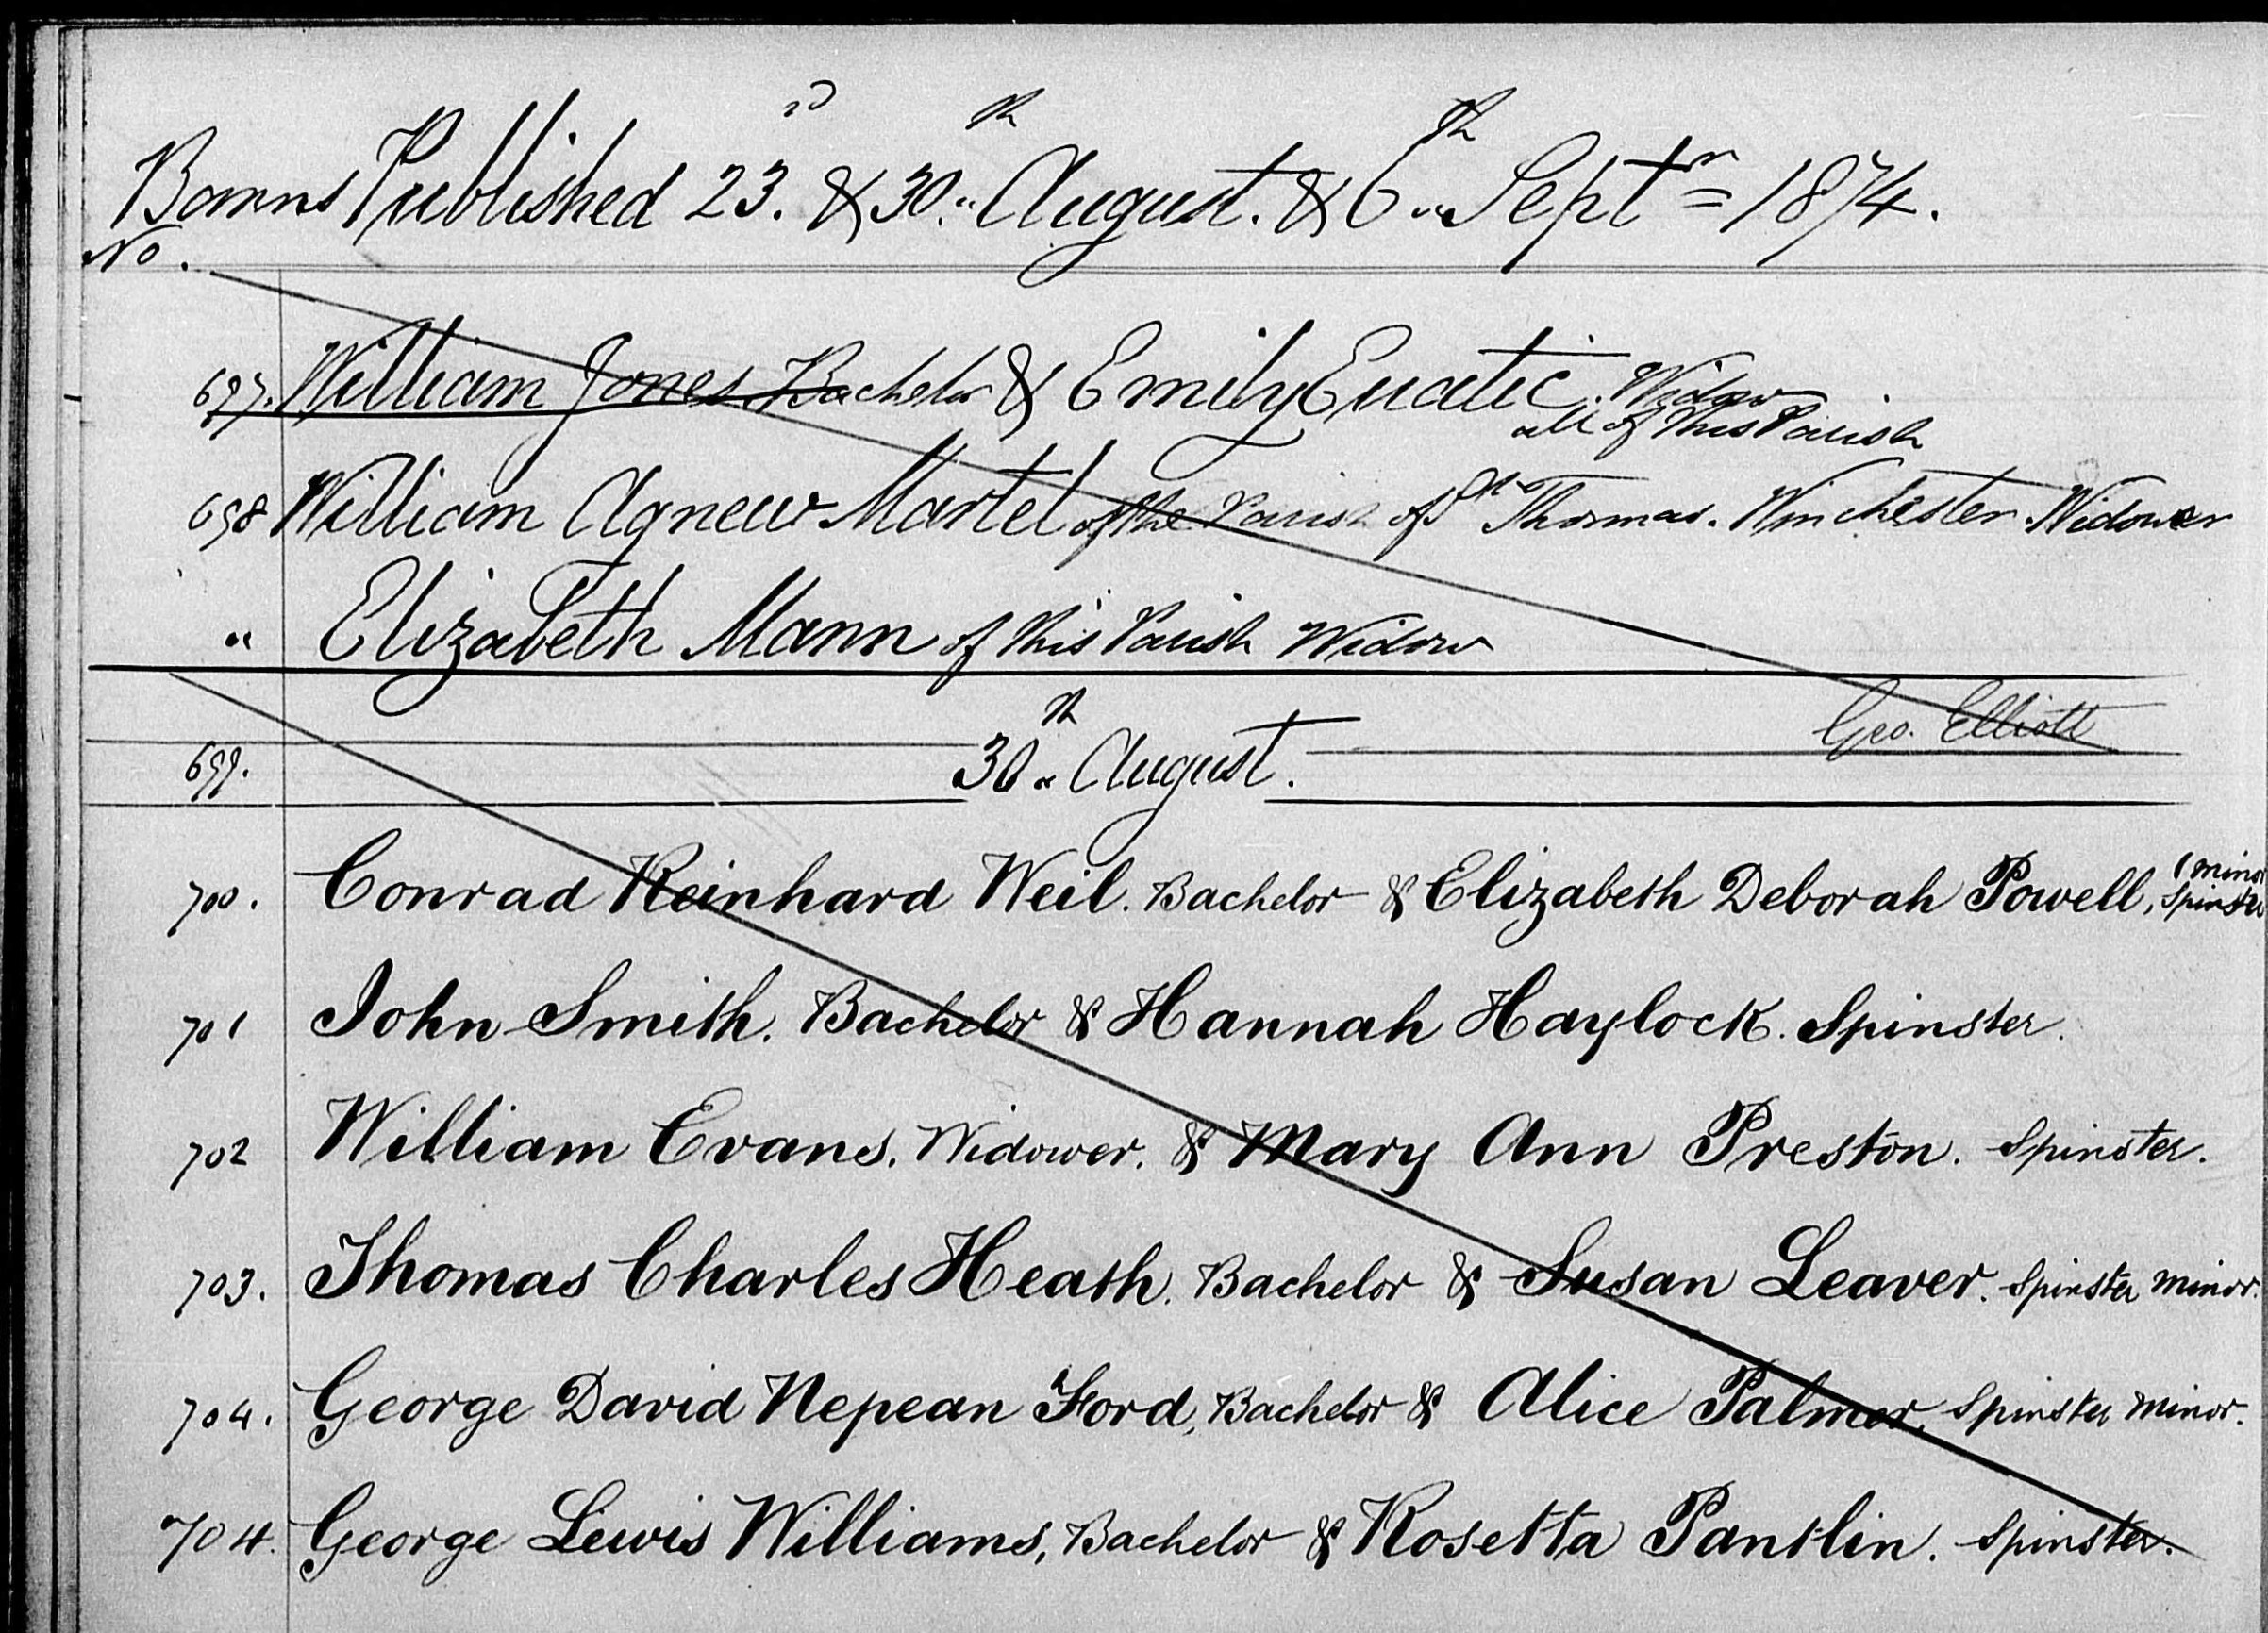 Banns Published 23.rd & 30.th August. & 6th Septr = 1874.
No.
697. William Jones Bachelor & Emily Widow
all of this Parish
698 William Agnew Martel of the Parish of St Thomas. Winchester. Widower
" Elizabeth Mann of this Parish Widow
Geo. Elliott
699. 30th August.
700. Conrad Reinhard Weil. Bachelor & Elizabeth Deborah Powell, Spinster (minor
701 John Smith. Bachelor & Hannah Haylock. Spinster.
702 William Evans. Widower. & Mary Ann Preston. Spinster.
703. Thomas Charles Heath. Bachelor & Susan Leaver. Spinster minor.
704. George David Nepean Ford, Bachelor & Alice Palmer, Spinster minor.
704. George Lewis Williams, Bachelor & Rosetta Pantlin. Spinster.